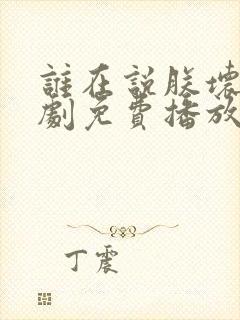 誰在説朕壞
劇免費播放
丁震